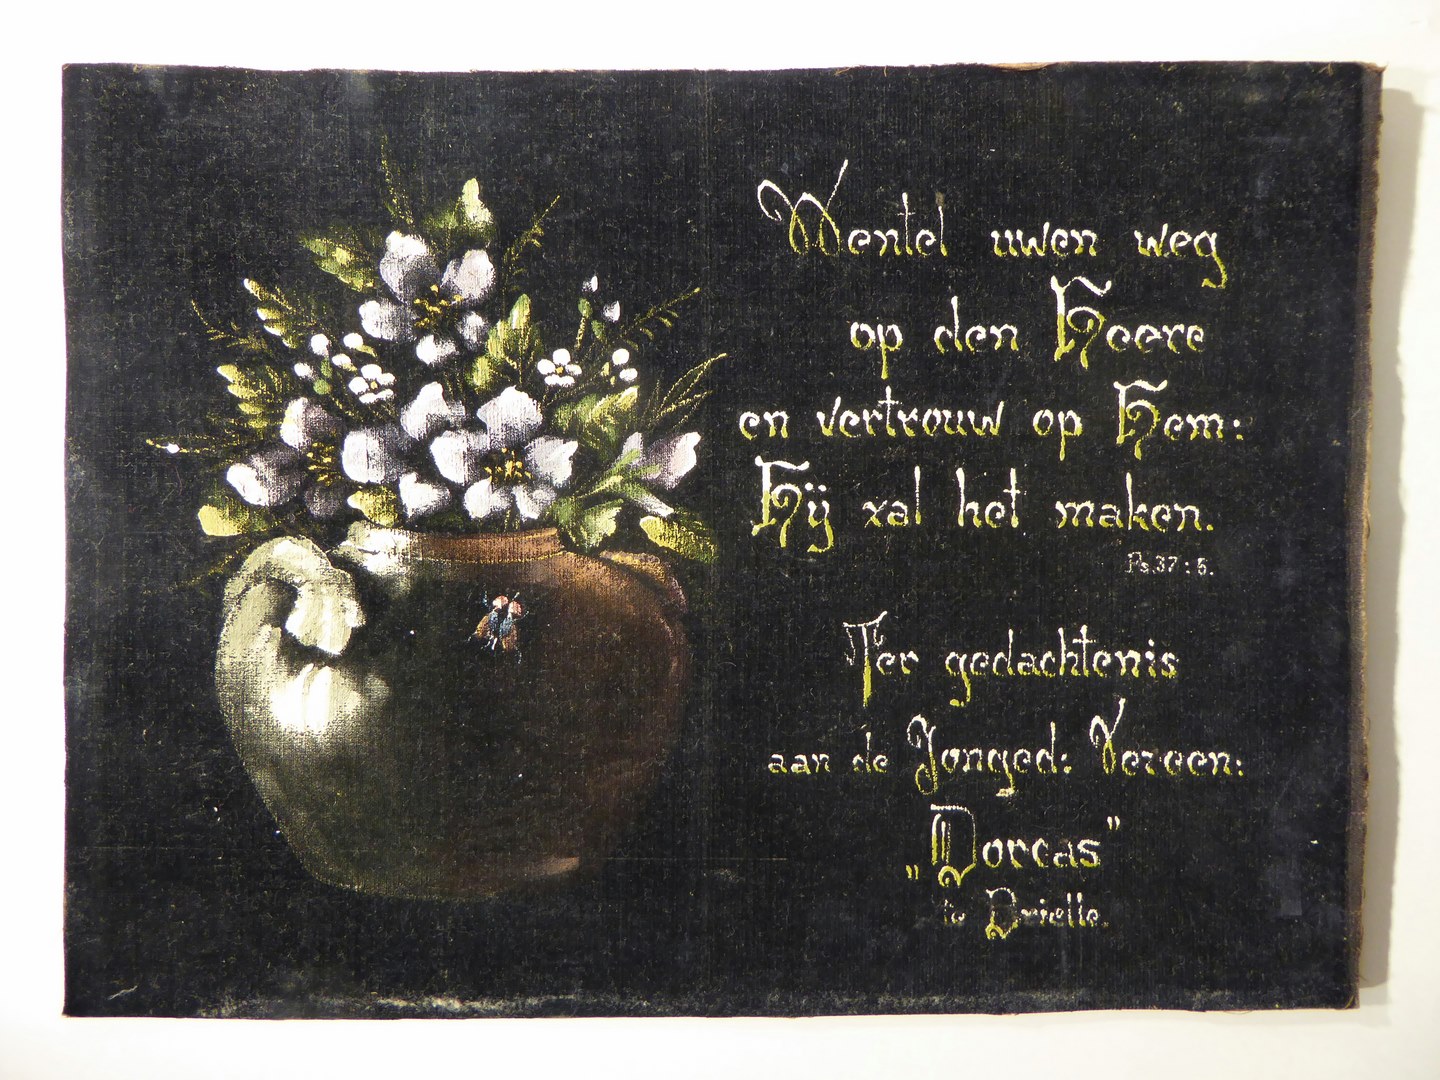 Wentel uwen weg
op den Heere
en vertrouw op Hem:
Hij zal het maken.
Ps.37:5.
Ter gedachtenis
aan de Jonged: Vereen:
„Dorcas"
te Brielle.